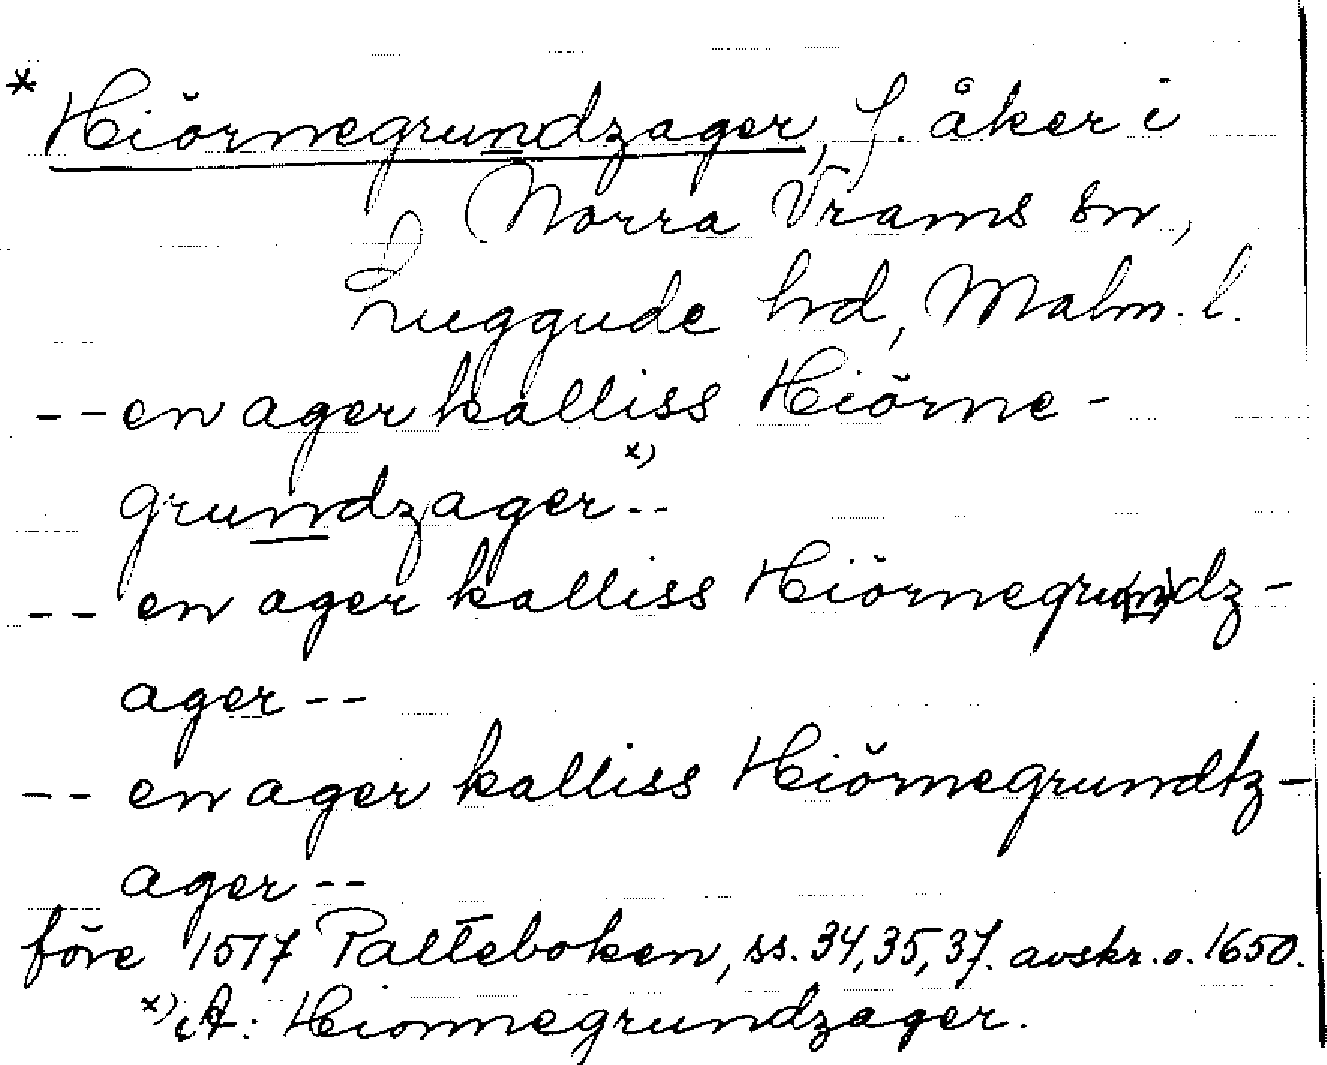 * Hiörnegrundzager, f. åker i
Norra Vrams sn,
Luggude hd, Malm. l.
-- en ager kalliss Hiörne-
grundzager x) --
-- en ager kalliss Hiörnegru(n)dz-
ager --
-- en ager kalliss Hiörnegrundtz-
ager --
före 1517 Palteboken, ss. 34, 35, 37. avskr. o. 1650.
x) i A: Hiornegrundzager.